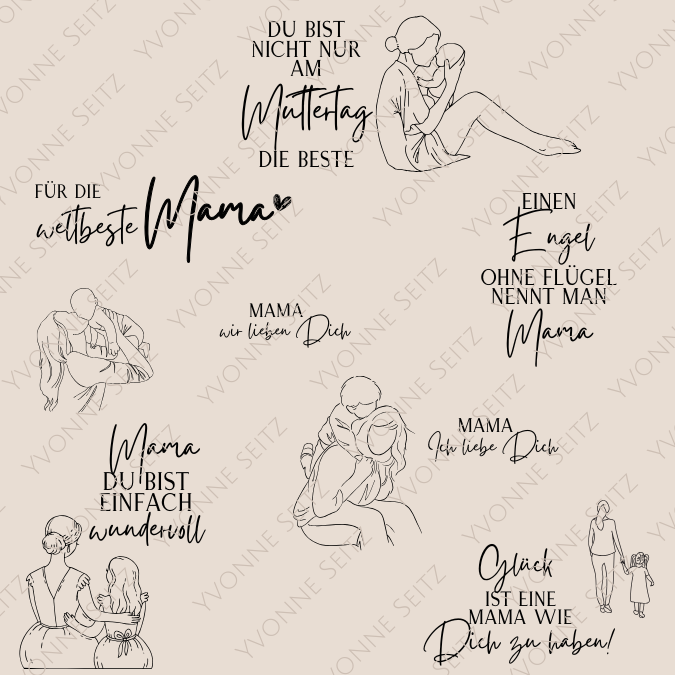 DU BIST
NICHT NUR
AM
Muttertag
DIE BESTE
FÜR DIE
weltbeste Mama
EINEN
Engel
OHNE FLÜGEL
NENNT MAN
Mama
MAMA
wir lieben Dich
MAMA
Ich liebe Dich
Mama
DU BIST
EINFACH
wundervoll
Glück
IST EINE
MAMA WIE
Dich zu haben!
YVONNE SEITZ